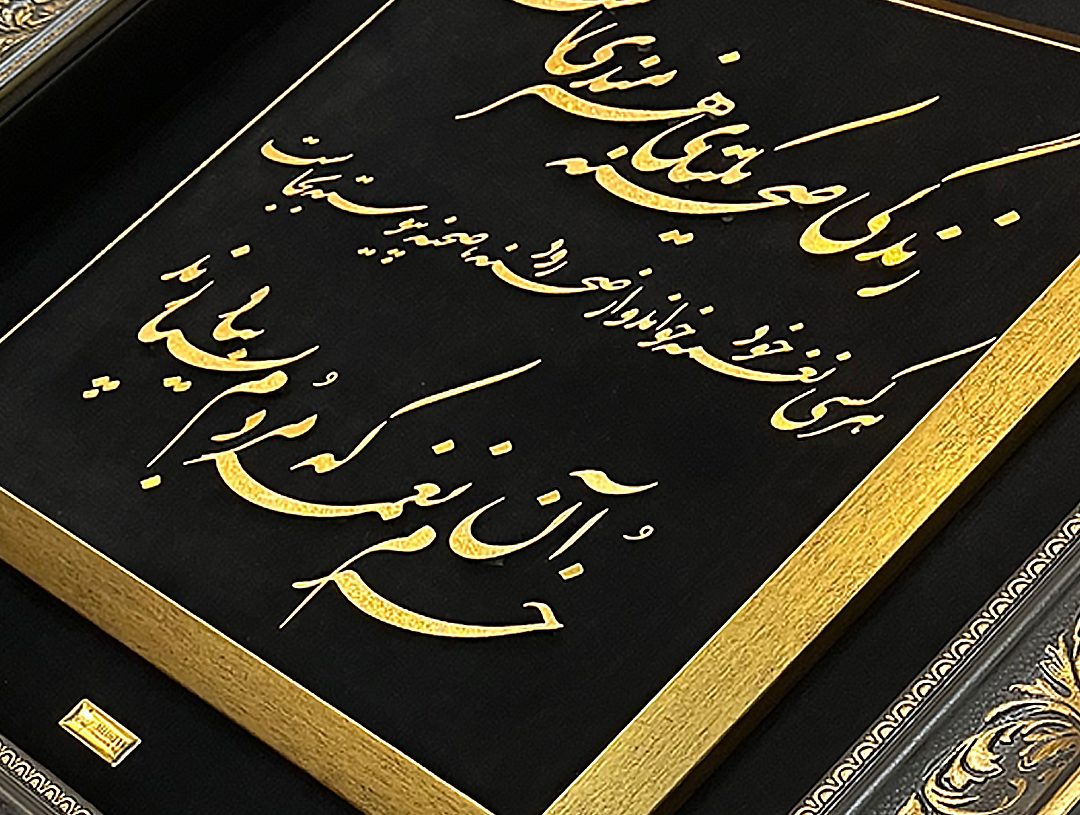 زندگی صحنه یکتای هنرمندی ماست
هر کسی نغمه خود خواند و از صحنه رود
صحنه پیوسته بجاست
خرم آن نغمه که مردم بسپارند بیاد